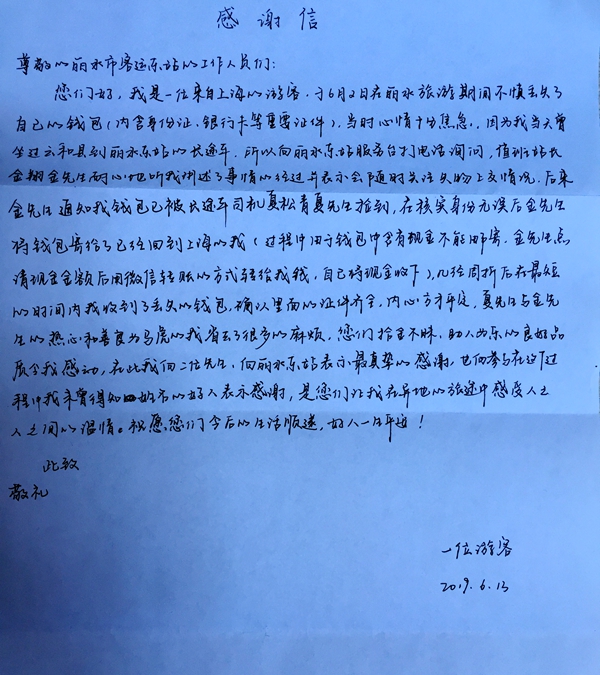 感谢信
尊敬的丽水市客运东站的工作人员们：
您们好，我是一位来自上海的游客，于6月2日在丽水旅游期间不慎丢失了
自己的钱包（内含身份证、银行卡等重要证件），当时心情十分焦急，因为我当天曾
坐过云和县到丽水东站的长途车，所以向丽水东站服务台打电话询问，值班站长
金翔金先生耐心地听我阐述了事情的经过并表示会随时关注失物上交情况，后来
金先生通知我钱包已被长途车司机夏松青夏先生捡到，在核实身份无误后金先生
将钱包寄给了已经回到上海的我（过程中由于钱包中含有现金不能邮寄，金先生点
清现金金额后用微信转账的方式转给我钱，自己将现金收下），几经周折后在最短
的时间内我收到了丢失的钱包，确认里面的证件齐全，内心方才平定，夏先生与金先
生的热心和善良为马虎的我省去了很多的麻烦，您们拾金不昧，助人为乐的良好品
质令我感动，在此我向二位先生，向丽水东站表示最真挚的感谢，也向参与在这个过
程中我未曾得知姓名的好人表示感谢，是您们让我在异地的旅途中感受人之
人之间的温情。祝愿您们今后的生活顺遂，好人一生平安！
此致
敬礼
一位游客
2019.6.13